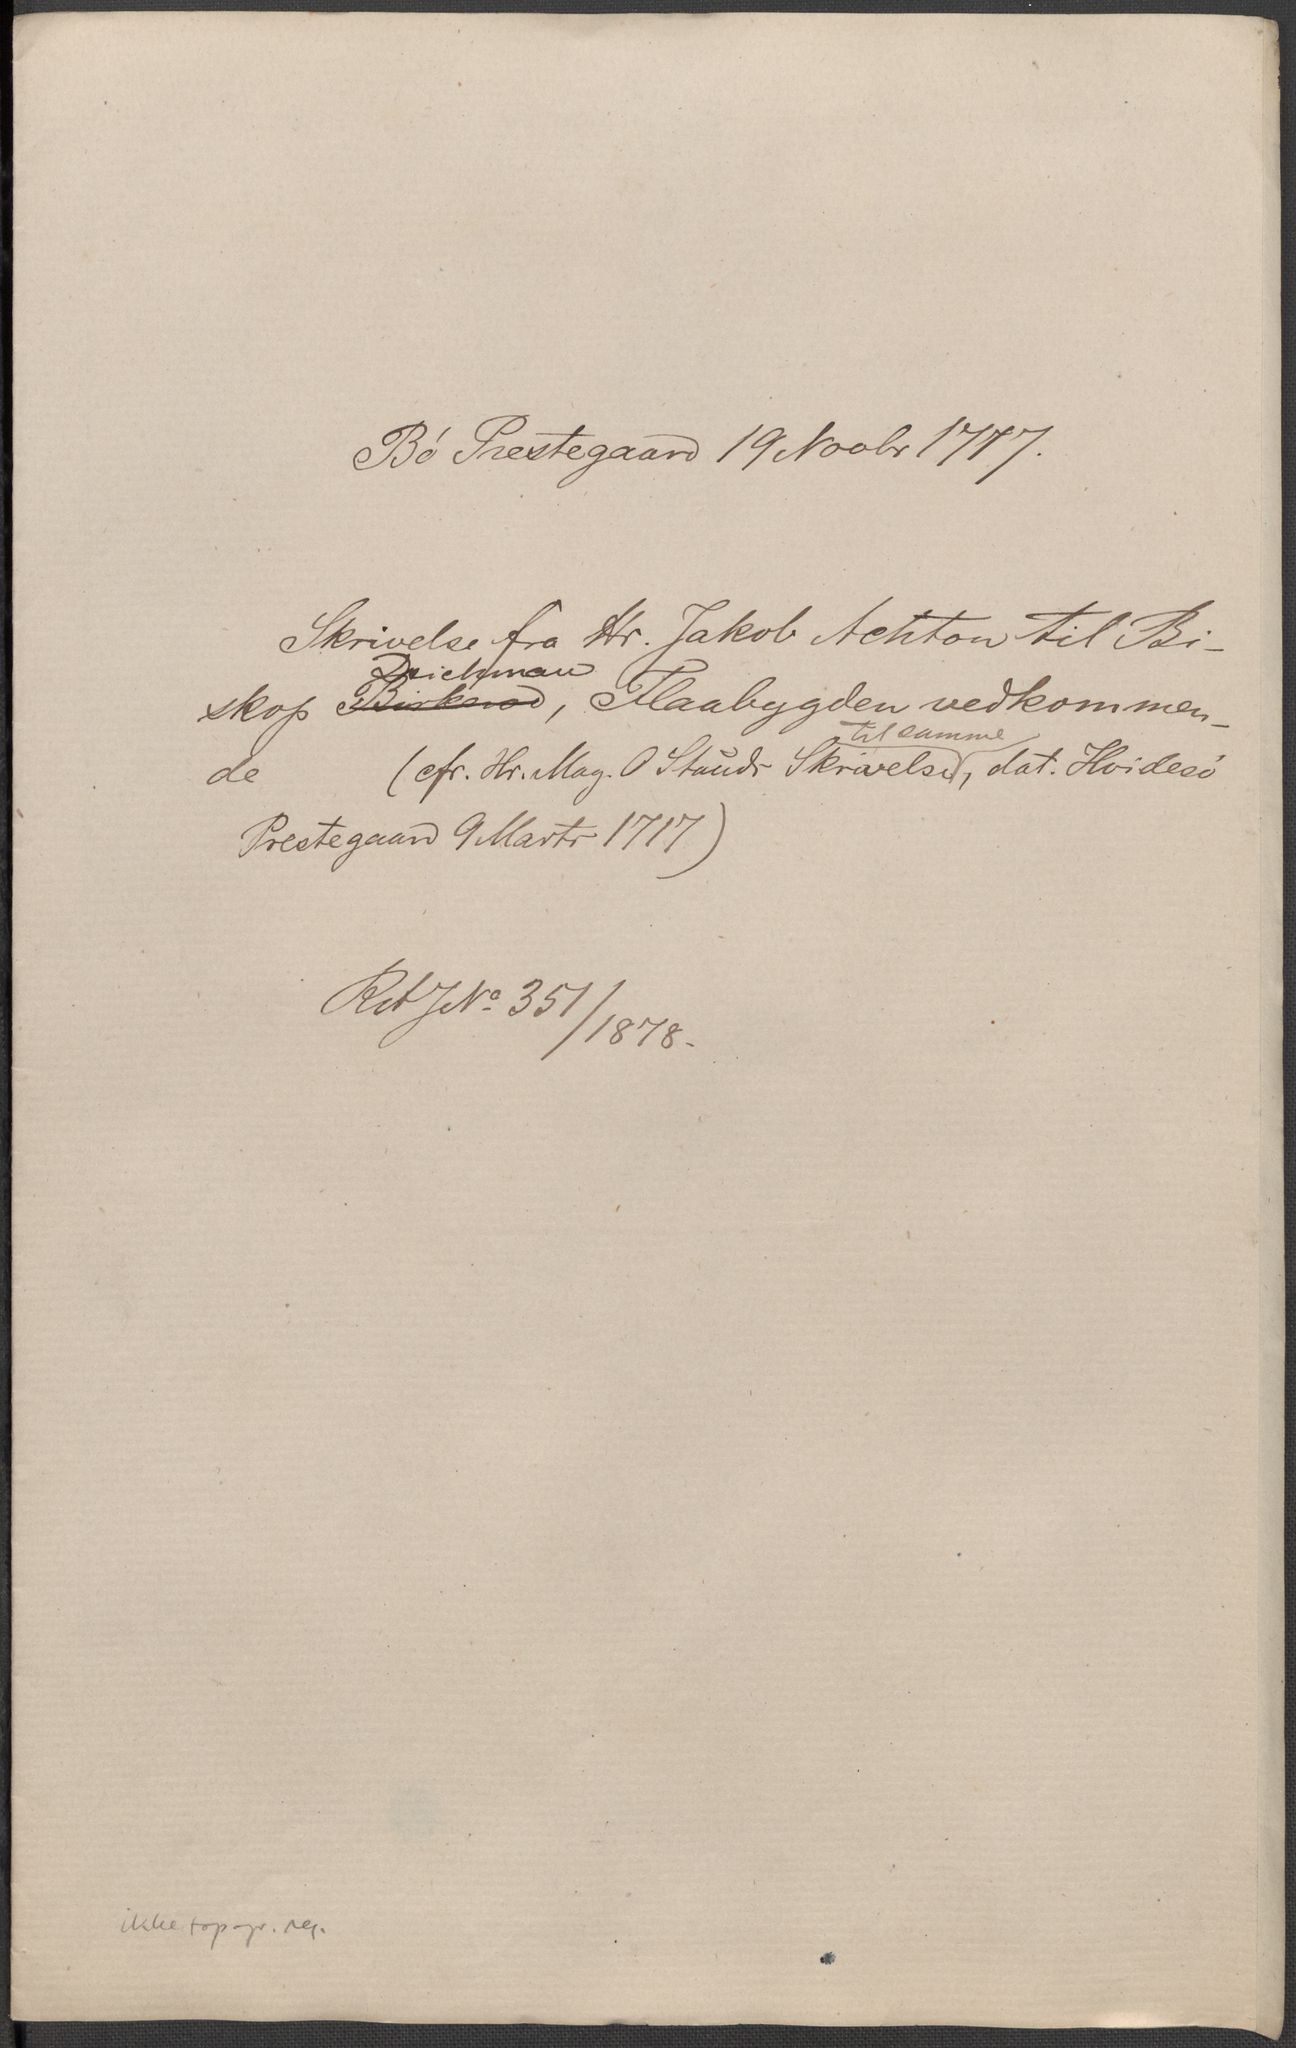 Bö Prestegaard 19 Novbr 1717.
Skrivelse fra Hr. Jakob Achton til Bi-
Deichman
skop Birkerod, Flaabygden vedkommen-
til samme
de (cfr. Hr. Mag. O Stauds Skrivelse, dat. Hvidesö
Prestegaard 9 Marts 1717)
RA JNo. 351/1878.
ikke topogr. reg.